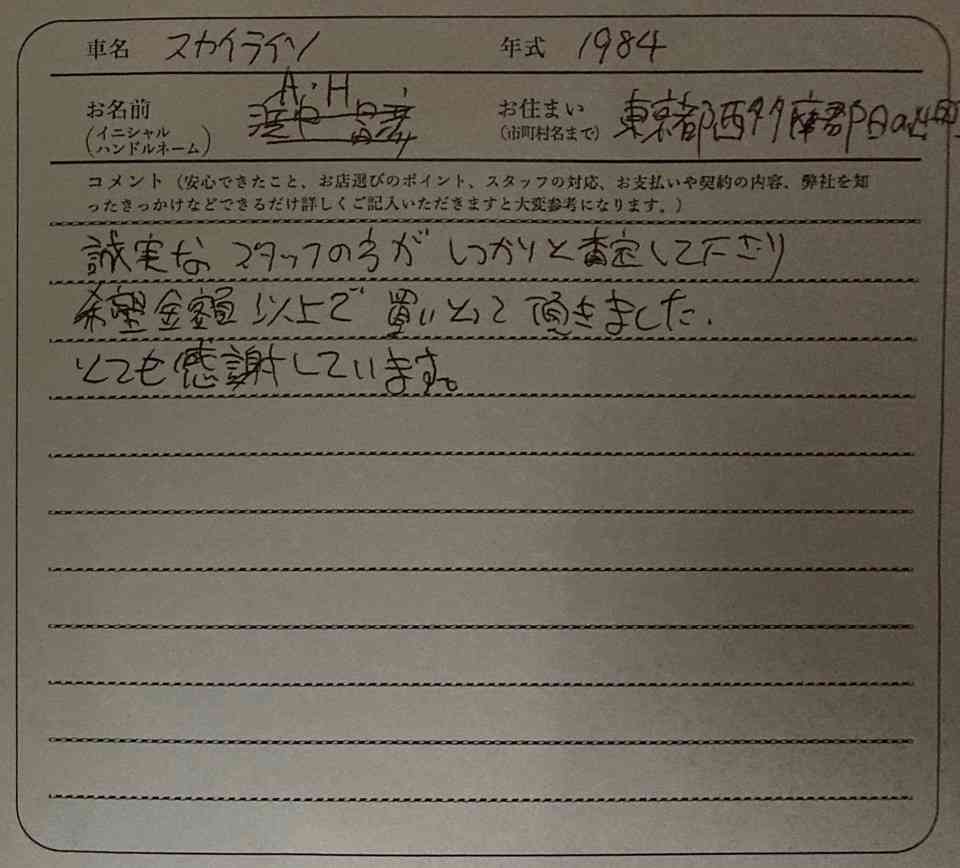 車名 スカイライン 年式 1984
お名前 (イニシャル ハンドルネーム) A・H お住まい (市町村名まで) 東京都西多摩郡日の出町
コメント（安心できたこと、お店選びのポイント、スタッフの対応、お支払いや契約の内容、弊社を知
ったきっかけなどできるだけ詳しくご記入いただきますと大変参考になります。）
誠実なスタッフの方がしっかりと査定して下さり
希望金額以上で買いとって頂きました.
とても感謝しています。